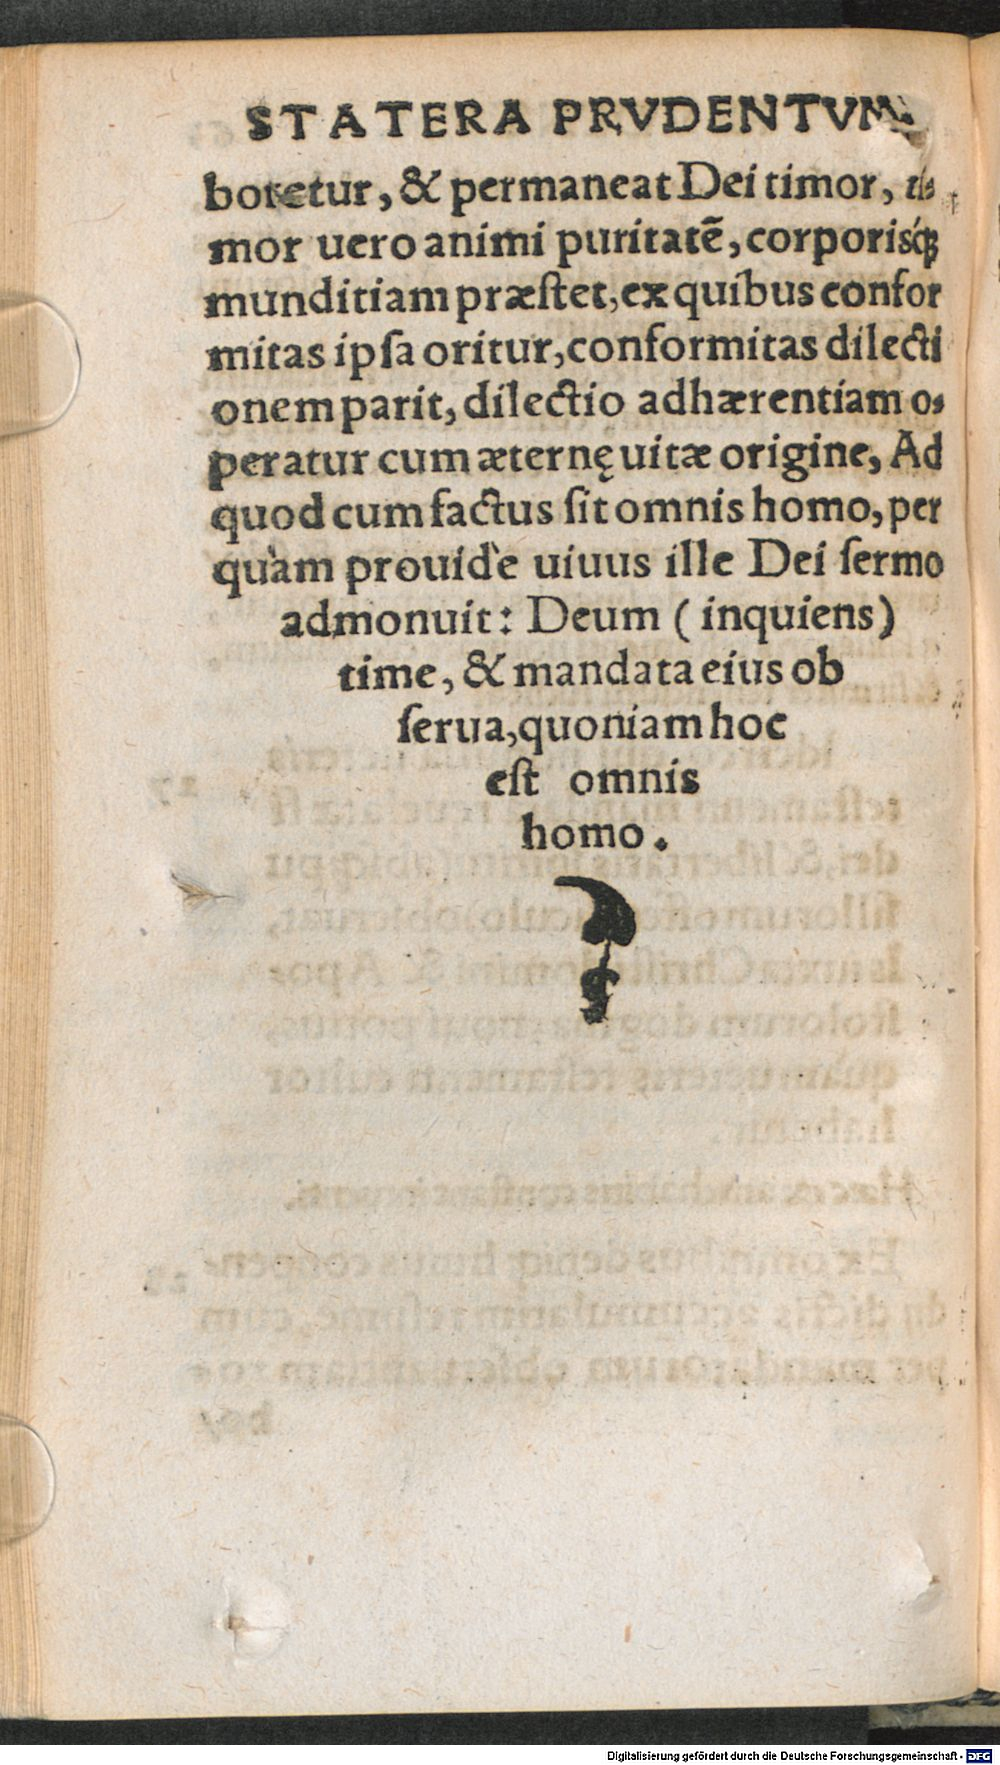 STATERA PRVDENTVM
boretur, & permaneat Dei timor, ti-
mor uero animi puritatē, corporisq́ꝫ
munditiam præstet, ex quibus confor
mitas ipsa oritur, conformitas dilecti
onem parit, dilectio adhærentiam o-
peratur cum æternę uitæ origine, Ad
quod cum factus sit omnis homo, per
quàm prouidè uiuus ille Dei sermo
admonuit: Deum (inquiens)
time, & mandata eius ob
serua, quoniam hoc
est omnis
homo.
Digitalisierung gefördert durch die Deutsche Forschungsgemeinschaft - DFG